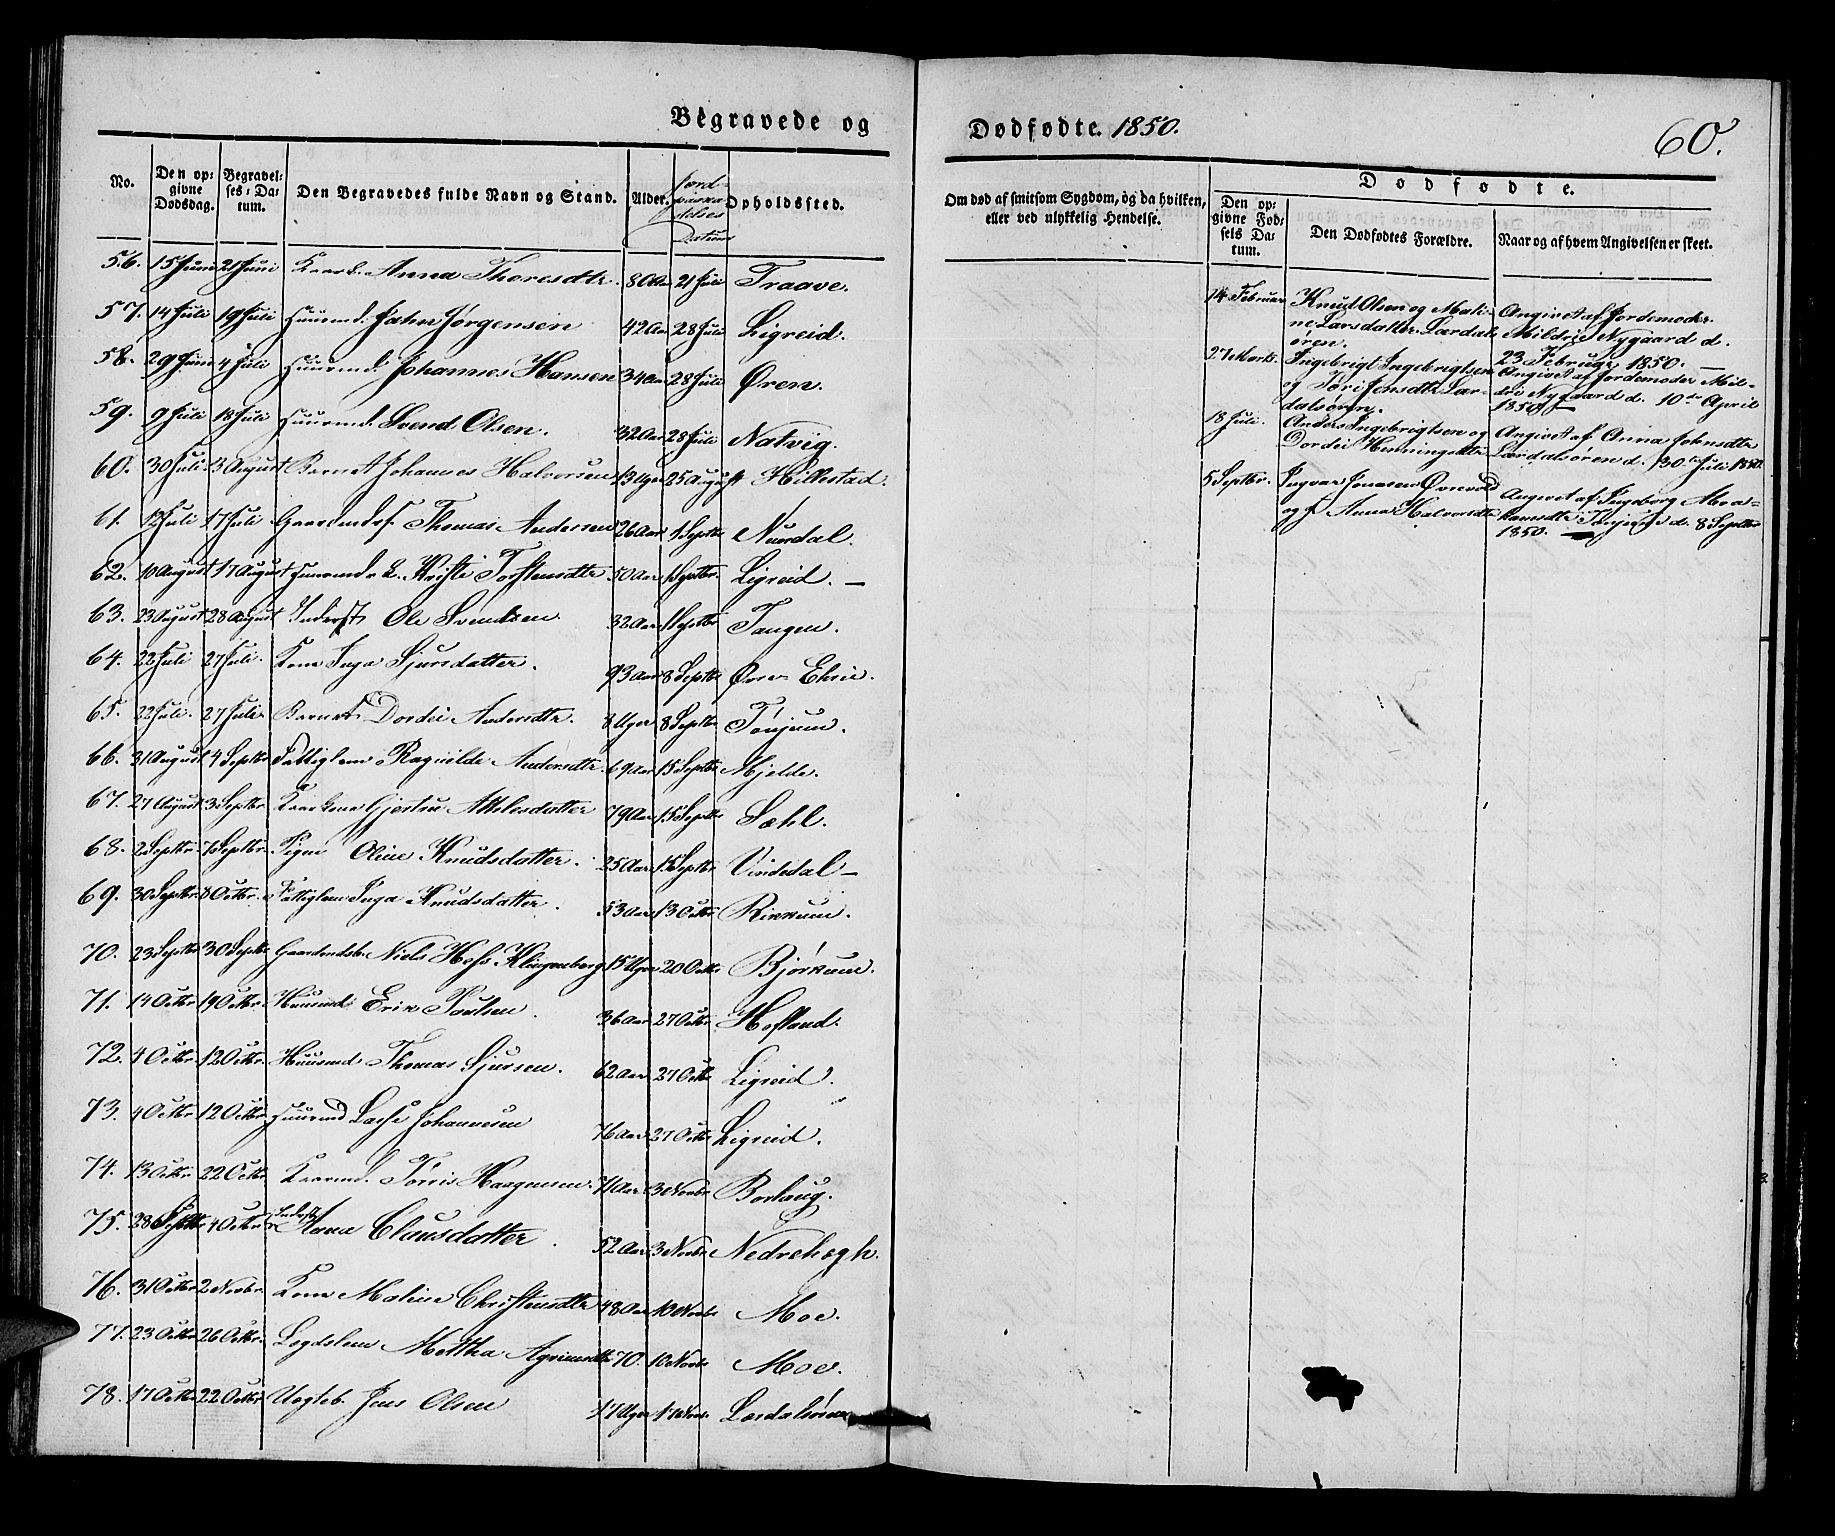 Begravede og
Dødfødte. 1850.
60.
No.
Den opgivne Dødsdag.
Begravelses-Datum.
Den Begravedes fulde Navn og Stand.
Alder.
Jordpaaskadelses Datum
Opholdssted.
Om død af smitsom Sygdom, og da hvilken,
eller ved ulykkelig Hendelse.
Dødfødte.
Den opgivne Fødsels Datum.
Den Dødfødtes Forældre.
Naar og af hvem Angivelsen er skeet.
56. 15 Juni 21 Juni Kaard. Anna Thoresdtr. 80 Aar 21 Juli Traave.
57. 14 Juli 19 Juli Huusmd. John Jørgensen 42 Aar 28 Juli Ligreid.
58. 29 Juni 4 Juli Huusmd. Johannes Hansen 34 Aar 28 Juli Øren.
59. 9 Juli 18 Juli Huusmd. Svend Olsen. 32 Aar 28 Juli Natvig.
60. 30 Juli 3 August Barnet Johannes Halvorsen 13 Uger 25 August Hillestad.
61. 12 Juli 17 Juli Gaardmds. Thomas Andersen 26 Aar 1 Septbr Nundal.
62. 10 August 17 August Huusmds. K. Kristi Torstensdtr 50 Aar 1 Septbr. Ligreid. —
63. 23 August 28 August Inderst Ole Svendsen 32 Aar 1 Septbr Tangen.
64. 22 Juli 27 Juli. Kone Inga Sjursdatter. 93 Aar 8 Septbr Øvre Ehrie.
65. 22 Juli. 27 Juli Barnet Dordei Andersdtr. 8 Uger 8 Septbr Tønjum.
66. 31 August 4 Septbr Fattiglem Ragnilde Andersdtr. 69 Aar 15 Septbr Mjelde.
67. 27 August 3 Septbr Kaarkone Gjertru Attlesdatter 79 Aar 15 Septbr Sæhl.
68. 2 Septbr. 7 Septbr. Pige Oline Knudsdatter. 25 Aar 15 Septbr Vindedal —
69. 30 Septbr. 8 Octbr. Fattiglem Inga Knudsdatter. 53 Aar 13 Octbr Rikkum.
70. 23 Septbr 30 Septbr Gaardmdsb. Niels Hess Klingenberg 15 Uger 20 Octbr Bjørkum.
71. 14 Octbr 19 Octbr. Huusmd. Erik Paulsen. 36 Aar 27 Octbr. Hofland.
72. 4 Octbr. 12 Octbr. Huusmd Thomas Sjursen. 62 Aar 27 Octbr Ligreid.
73. 4 Octbr 12 Octbr. Huusmd Lasse Johannesen 76 Aar 27 Octbr Ligreid.
74. 13 Octbr. 22 Octbr. Kaarmd. Tørris Haagensen. 71 Aar 3 Novbr. Borhaug.
75. 28 Septbr 4 Octbr Inderst Anna Clausdatter. 52 Aar 3 Novbr. Nedrehegh.
76. 31 Octbr 2 Novbr. Kone Maline Christensdtr 48 Aar 10 Novbr Moe.
77. 23 Octbr 26 Octbr. Legdslem Mettha 70. 10 Novbr. Moe.
78. 17 Octbr 22 Octbr Uægteb. Jens Olsen 17 Uger 17 Novbr. Lærdalsøren
14 Februar Knud Olsen og Maline Larsdatter Lærdalsøren. Angivet af Jordemoder Mildrie Nygaard d. 23 Februar 1850. —
27 Marts. Ingebrigt Ingebrigtsen og Tøri Jensdtr Lærdalsøren. Angivet af Jordemoder Mildri Nygaard d. 10de April 1850 —
18 Juli. Anders Ingebrigtsen og Dordei Henningsdtr Angivet af Anna Johnsdtr Lærdalsøren d. 30te Juli 1850.
5 Septbr. Ingvar Jonasen Ørevold og Anna Halvorsdtr Angivet af Ingeborg Abrahamsdtr Tønjum d. 8 Septbr 1850. —